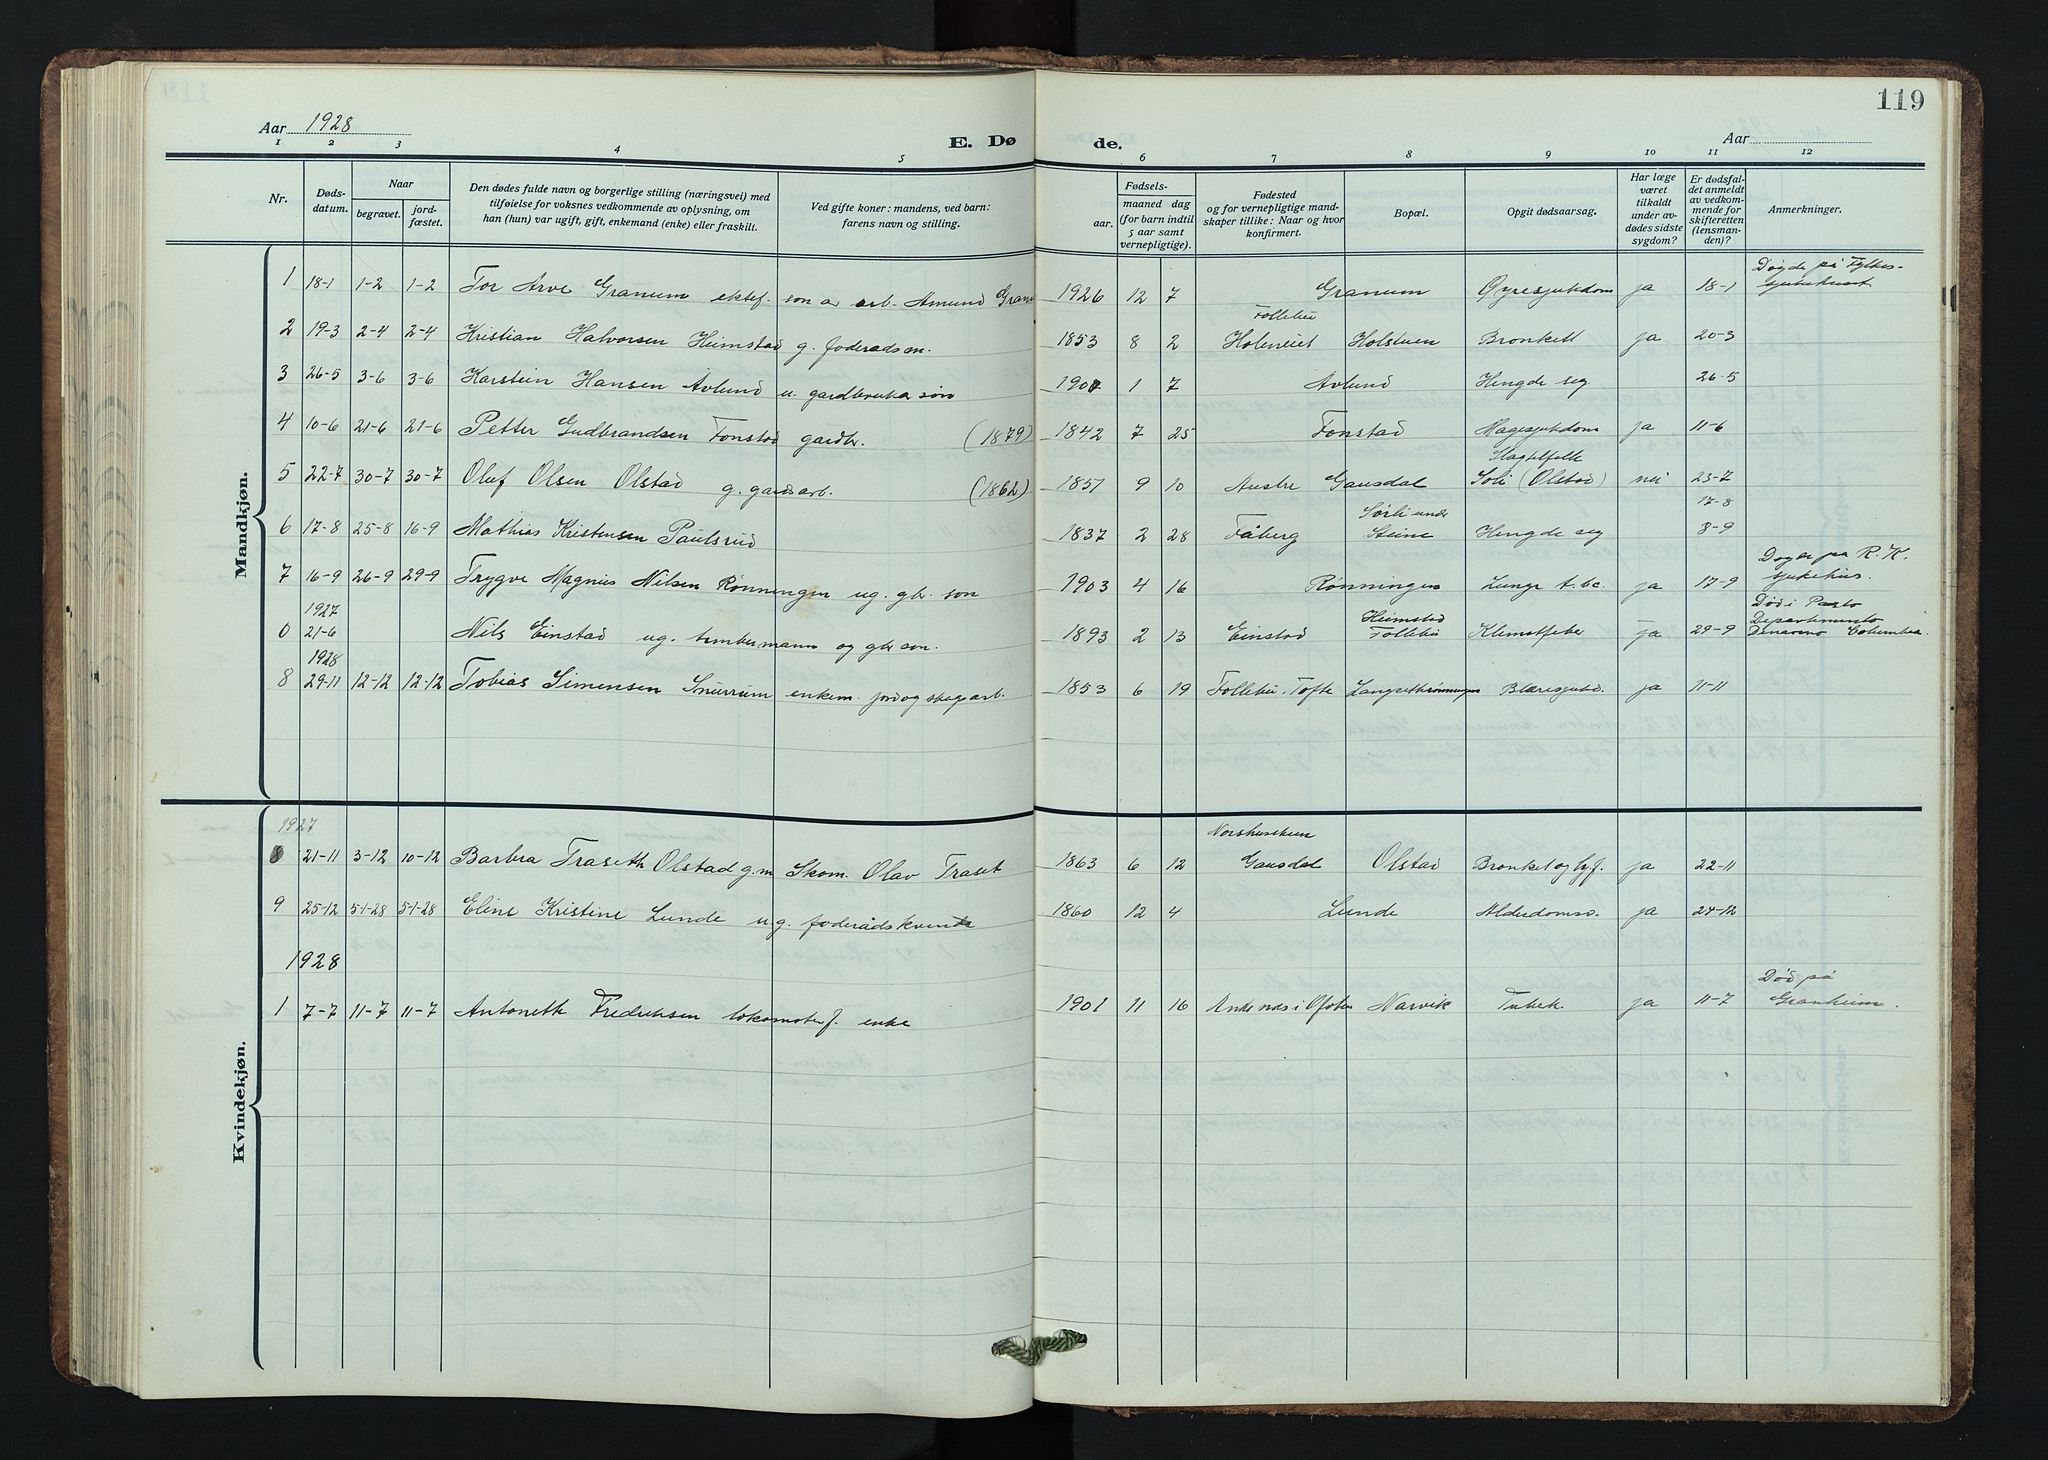 119
Aar 1928
E. Dø de.
Aar
1 2 3 4 5 6 7 8 9 10 11 12
Nr.
Døds-
datum.
Naar
begravet.
jord-
fæstet.
Den dødes fulde navn og borgerlige stilling (næringsvei) med
tilføielse for voksnes vedkommende av oplysning, om
han (hun) var ugift, gift, enkemand (enke) eller fraskilt.
Ved gifte koner: mandens, ved barn:
farens navn og stilling.
Fødsels-
aar.
maaned dag
(for barn indtil
5 aar samt
vernepligtige).
Fødested
og for vernepligtige mand-
skaper tillike: Naar og hvor
konfirmert.
Bopæl.
Opgit dødsaarsag.
Har læge
været
tilkaldt
under av-
dødes sidste
sygdom?
Er dødsfal-
det anmeldt
av vedkom-
mende for
skifteretten
(lensman-
den)?
Anmerkninger.
Mandkjøn.
1 18-1 1-2 1-2 Tor Arve Granum ektef. son av arb. Amund Gran 1926 12 7 Granum Øyresjukdom ja 18-1 Døyde på Fylkes-
sjukehuset
Follebu
2 19-3 2-4 2-4 Kristian Halvorsen Heimstad g. foderådsm. 1853 8 2 Holeneiet Holstuen Bronkett ja 20-3
3 26-5 3-6 3-6 Karstein Hansen Avlund u. gardbrukar søn 1907 1 7 Avlund Hengde seg 26-5
4 10-6 21-6 21-6 Petter Gudbrandsen Fonstad gardbr. (1879) 1842 7 25 Fonstad Magesjukdom ja 11-6
5 22-7 30-7 30-7 Oluf Olsen Olstad g. gardsarb. (1862) 1851 9 10 Austre Gausdal Soli (Olstad) nei 23-7
Slagtilfelle
6 17-8 25-8 16-9 Mathias Kristensen Paulsrud 1837 2 28 Fåberg Sørli under
Steine Hengde seg 17-8
8-9
7 16-9 26-9 29-9 Trygve Magnus Nilsen Rønningen ug. gbr. son 1903 4 16 Rønningen Lunge t.bc. ja 17-9 Døyde på R. K.
sjukehus.
1927
0 21-6 Nils Einstad ug. tømbermann og gbr son. 1893 2 13 Einstad Heimstad
Follebu Klimatfeber ja 29-9 Død i
Departemento
Columbia.
1928
8 29-11 12-12 12-12 Tobias Simensen Snurrum enkem. jord og skogsarb. 1853 6 19 Follebu. Tofte Langsethrønningen Blæresjukd. ja 11-11
Kvindekjøn.
1927
8 21-11 3-12 10-12 Barbra Traseth Olstad g.m. Skom. Olav Traset 1863 6 12 Gausdal Olstad Bronkel og lgf. ja 22-11
9 25-12 5-1-28 5-1-28 Eline Kristine Lunde ug. foderådskvende 1860 12 4 Lunde Alderdomsv. ja 27-12
1928
1 7-7 11-7 11-7 Antonette Fredriksen lokomotivf. enke 1901 11 16 Ankenes i Ofoten Narvik Tubek. ja 11-7 Død på
Granheim.